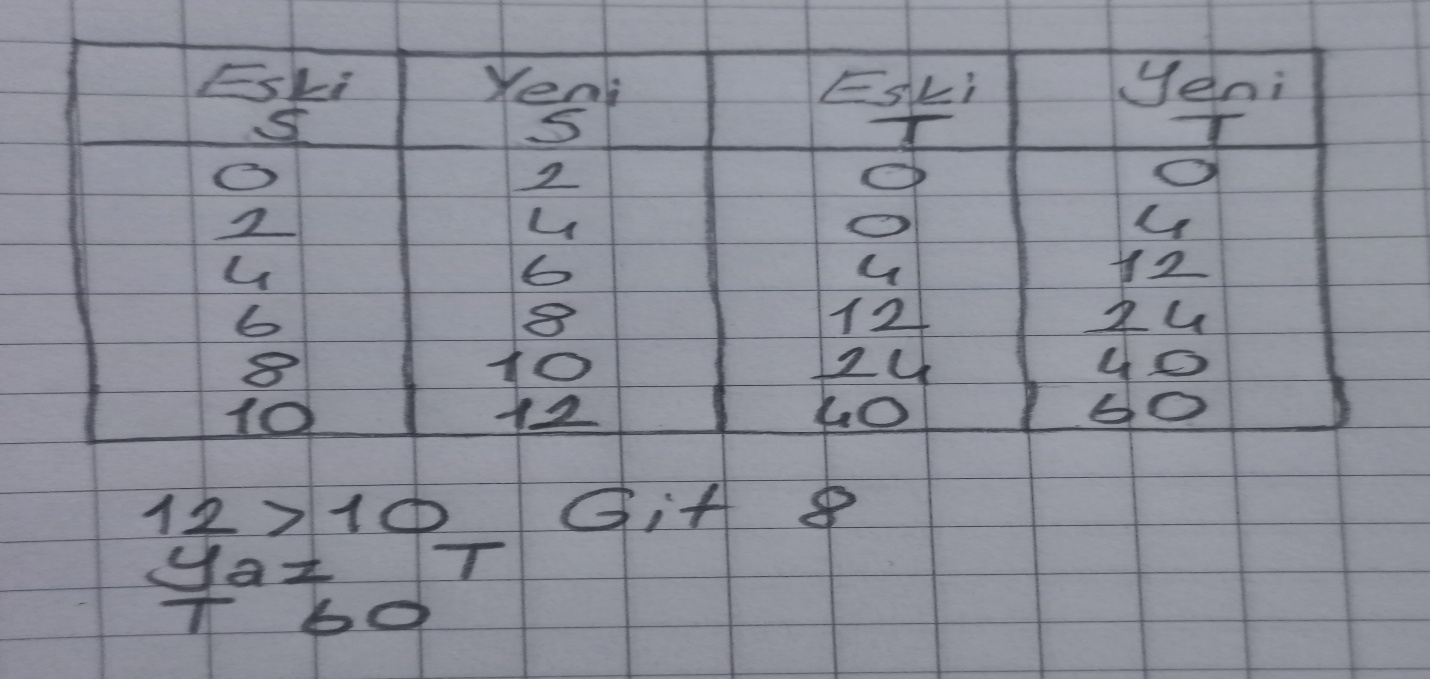 Eski Yeni Eski Yeni
S S T T
0 2 0 0
2 4 0 4
4 6 4 12
6 8 12 24
8 10 24 40
10 12 40 60
12 > 10 Git 8
Yaz T
T 60